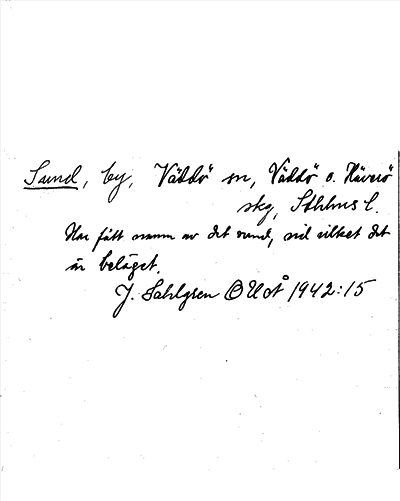 Sund, by, Väddö sn, Väddö o. Häverö
skg, Sthlms l.
Har fått namn av det sund, vid vilket det
är beläget.
J. Sahlgren OUoÅ 1942:15